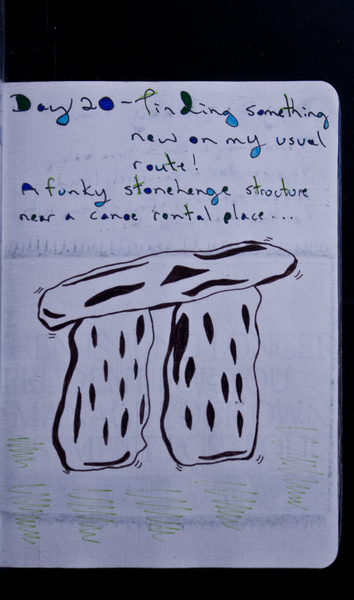 Day 20 - finding something
new on my usual
route!
A funky stonehenge structure
near a canoe rental place...